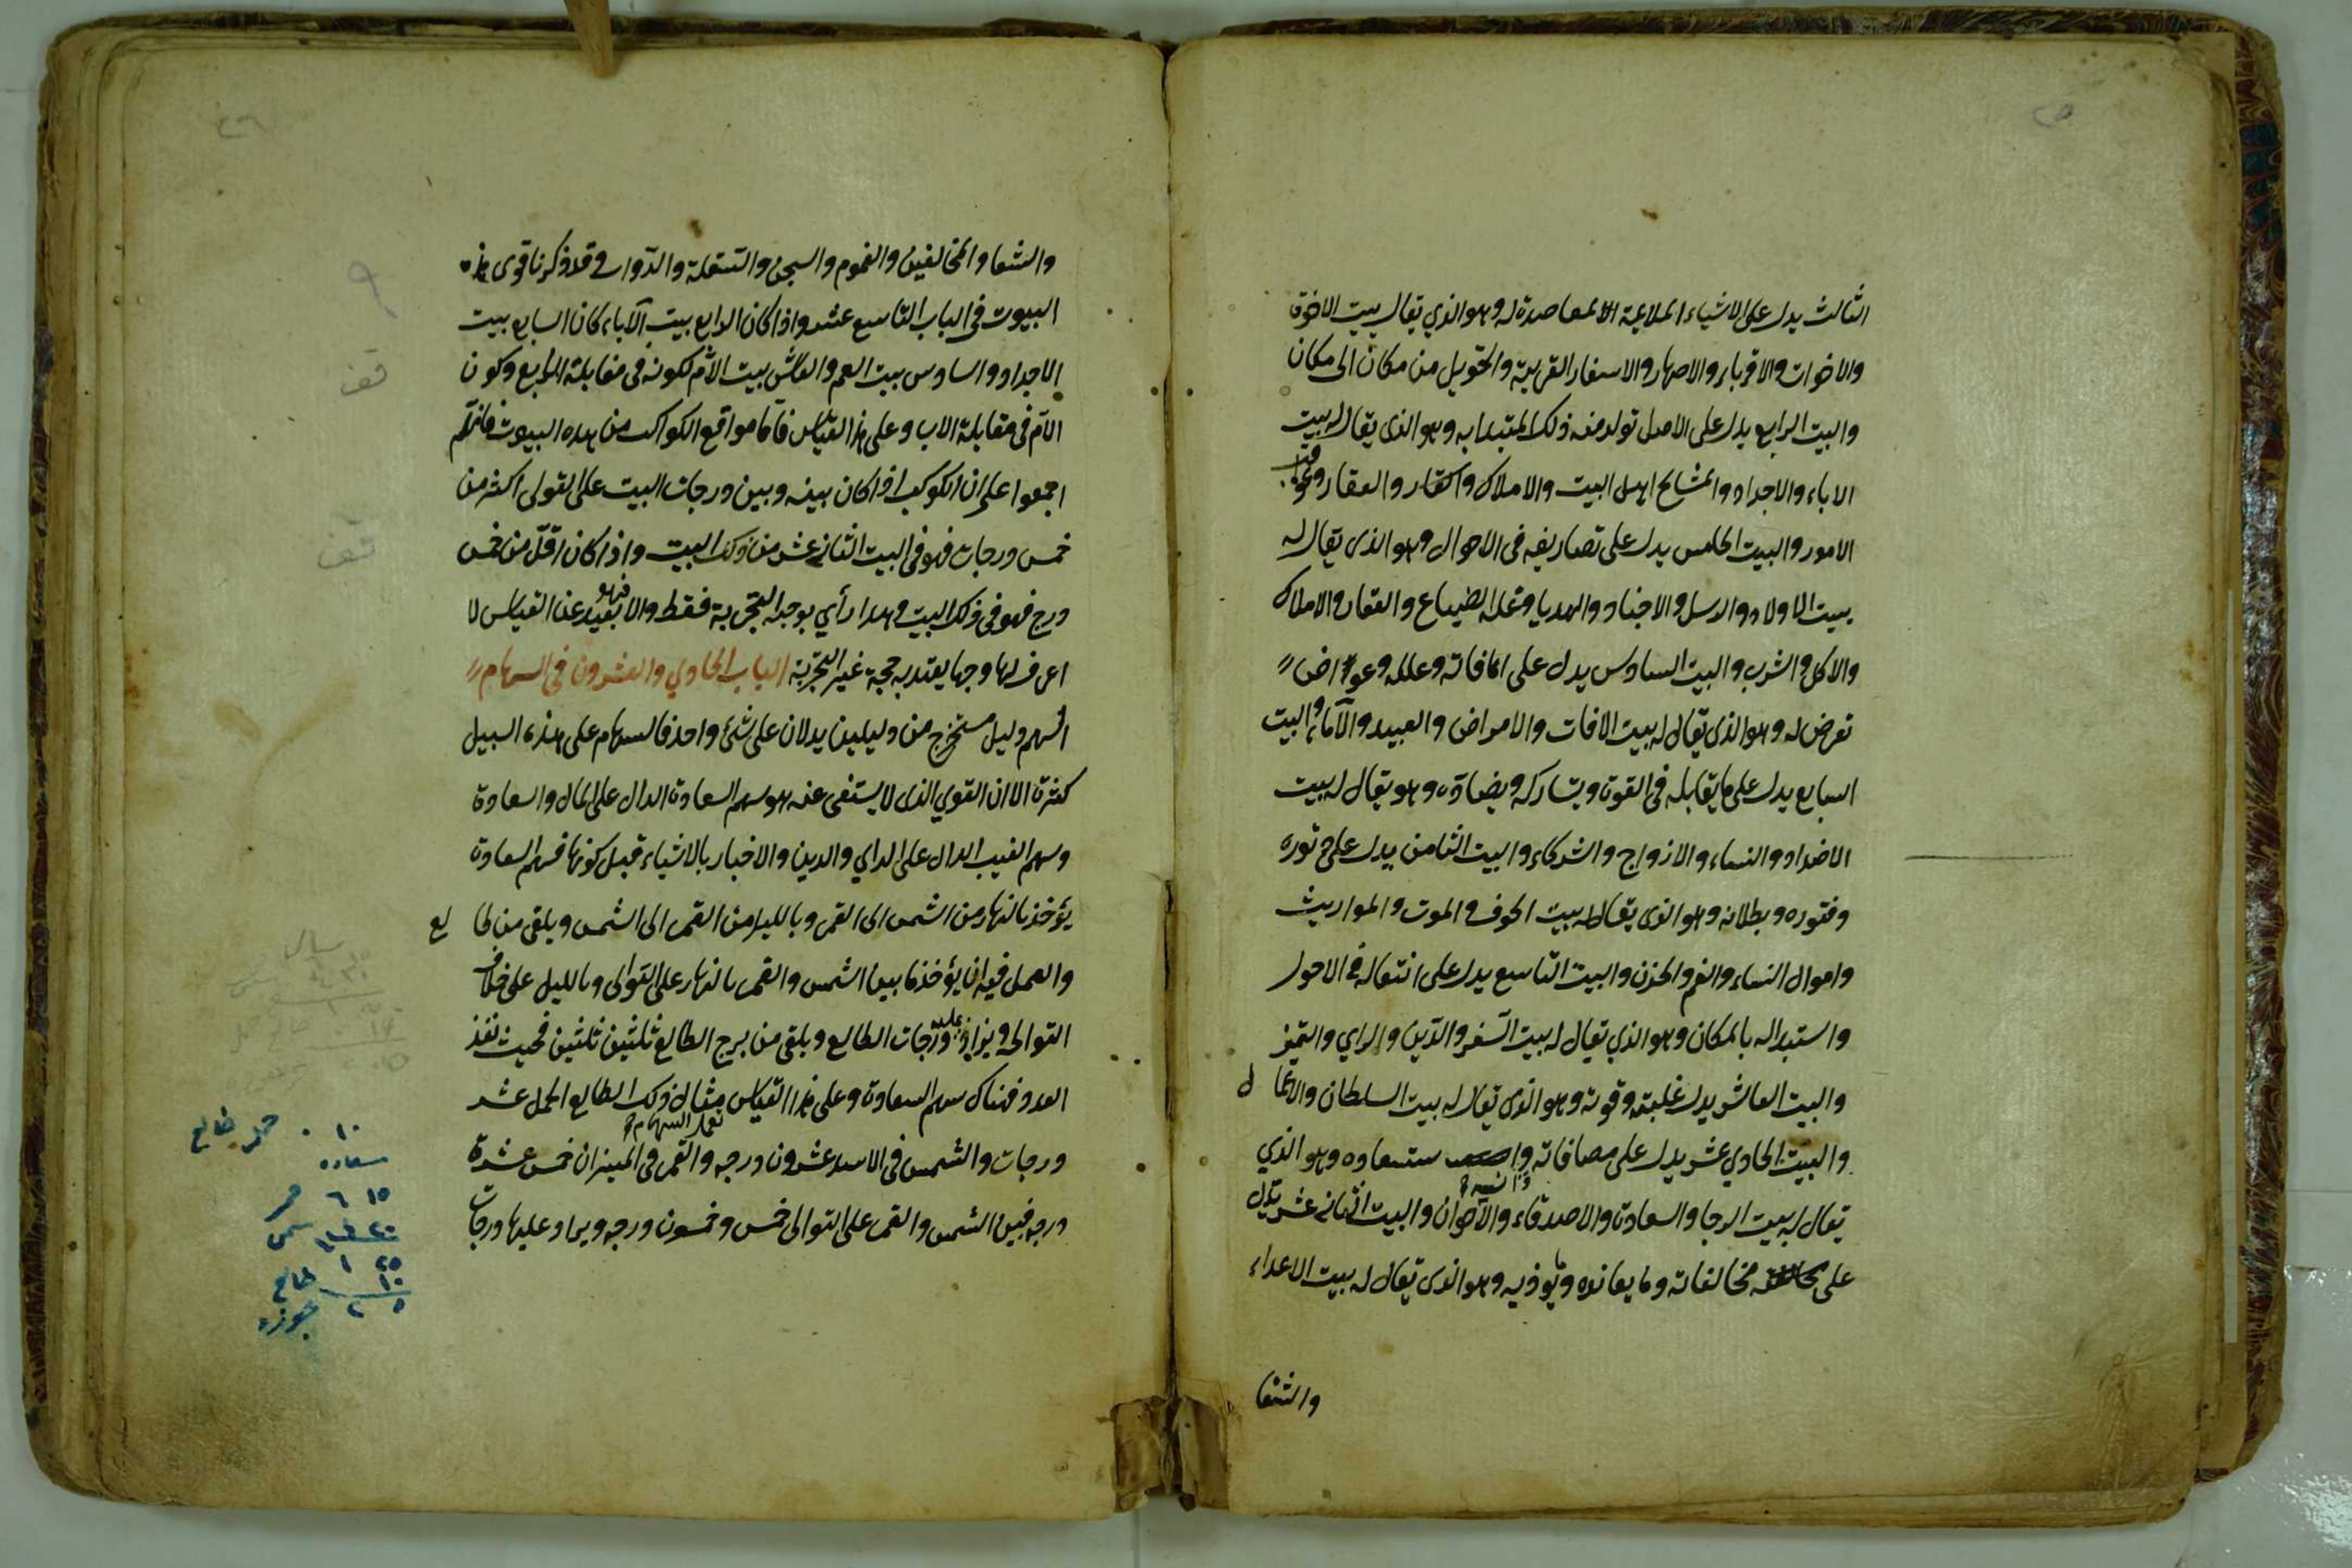 الثالث يدل على الاشياء الملايمة المعاصدة له وهو الذي يقال بيت الاخوة
والاخوات والاقرباء والاصهار والاسفار القريبة والتحويل من مكان الى مكان
والبيت الرابع يدل على الاصل تولد منه ذلك المبتدا به وهو الذى يقال له بيت
الاباء والاجداد والمشايخ اهل البيت والاملاك والعقار وعواقب
الامور والبيت الخامس يدل على تصاريفه فى الاحوال وهو الذى يقال له
بيت الاولاد والرسل والاجناد والهدايا وغلة الضياع والعقار والاملاك
والاكل والشرب والبيت السادس يدل على افاته وعلله وعوارض
تعرض له وهو الذى يقال له بيت الافات والامراض والعبيد والآماء والبيت
السابع يدل على ما يقابله فى القوة ويشاركه ويضادّه وهو يقال له بيت
الاضداد والنساء والازواج والشركاء والبيت الثامن يدل على
وفتوره وبطلانه وهو الذى يقال له بيت الخوف والموت والمواريث
واموال النساء والغم والحزن والبيت التاسع يدل على انتقاله فى الاحوال
واستبداله بالمكان وهو الذي يقال له بيت السّفر والدّين والراي والتميز
والبيت العاشر يدل غلبته وقوته وهو الذى يقال له بيت السلطان والاعمال
والبيت الحادي عشر يدل على مصافاته ستسعاده وهو الذي
يقال له بيت الرجا والسعادة والاصدقاء والاخوان والبيت الثانى عشر يدل
على مخالفاته وما يعانده ويؤذيه وهو الذى يقال له بيت الاعداء
والشقا
والشقا والمخالفين والغموم والسجن والسّفلة والدّواب وقد ذكرنا قوى هذه
البيوت فى الباب التاسع عشر واذا كان الرابع بيت الآباء كان السابع بيت
الاجداد والسادس بيت العم والعاشر بيت الأم لكونه فى مقابلة الرابع وكون
الام فى مقابلة الاب وعلى هذا القياس فاما مواقع الكواكب من هذه البيوت فانهم
اجمعوا على ان الكوكب اذا كان بينه وبين درجات البيت على التوالى اكثر من
خمس درجات فهو فى البيت الثانى عشر من ذلك البيت واذا كان اقلّ من خمس
درج فهو فى ذلك البيت وهذا رأي يوجد بالتجربة فقط والا فهو بعيد عن القياس لا
اعرف لها وجها يعتد به حجة غير التجربة الباب الحادي والعشرون فى السهام
السهم دليل مستخرج من دليلين يدلان على شئ واحد فالسهام على هذه السبيل
كثيرة الا ان القوي الذى لا يستغنى عنه هو سهم السعادة الدال على المال والسعادة
وسهم الغيب الدال على الراي والدين والاخبار بالاشياء قبل كونها فسهم السعادة
يؤخذ بالنهار من الشمس الى القمر وبالليل من القمر الى الشمس ويلقى من طالع
والعمل فيه ان يؤخذ ما بين الشمس والقمر بالنهار على التوالى وبالليل على خلاف
التوالى ويزاد عليه درجات الطالع ويلقى من برج الطالع ثلثين ثلثين فحيث نفذ
العدد فهناك سهم السعادة وعلى هذا القياس تعمل السهام مثال ذلك الطالع الحمل عشر
درجات والشمس فى الاسد عشرون درجه والقمر فى الميزان خمس عشرة
درجه فبين الشمس والقمر على التوالى خمس وخمسون درجه ويزاد عليها درجات
قف
قف
١٠ ٠ حمل طالع
سعاده
١٥ ٦ قمر
٢٠ ٤ شمس
٢٥ ١
١٠ طالع
٥ ٢ جوزء